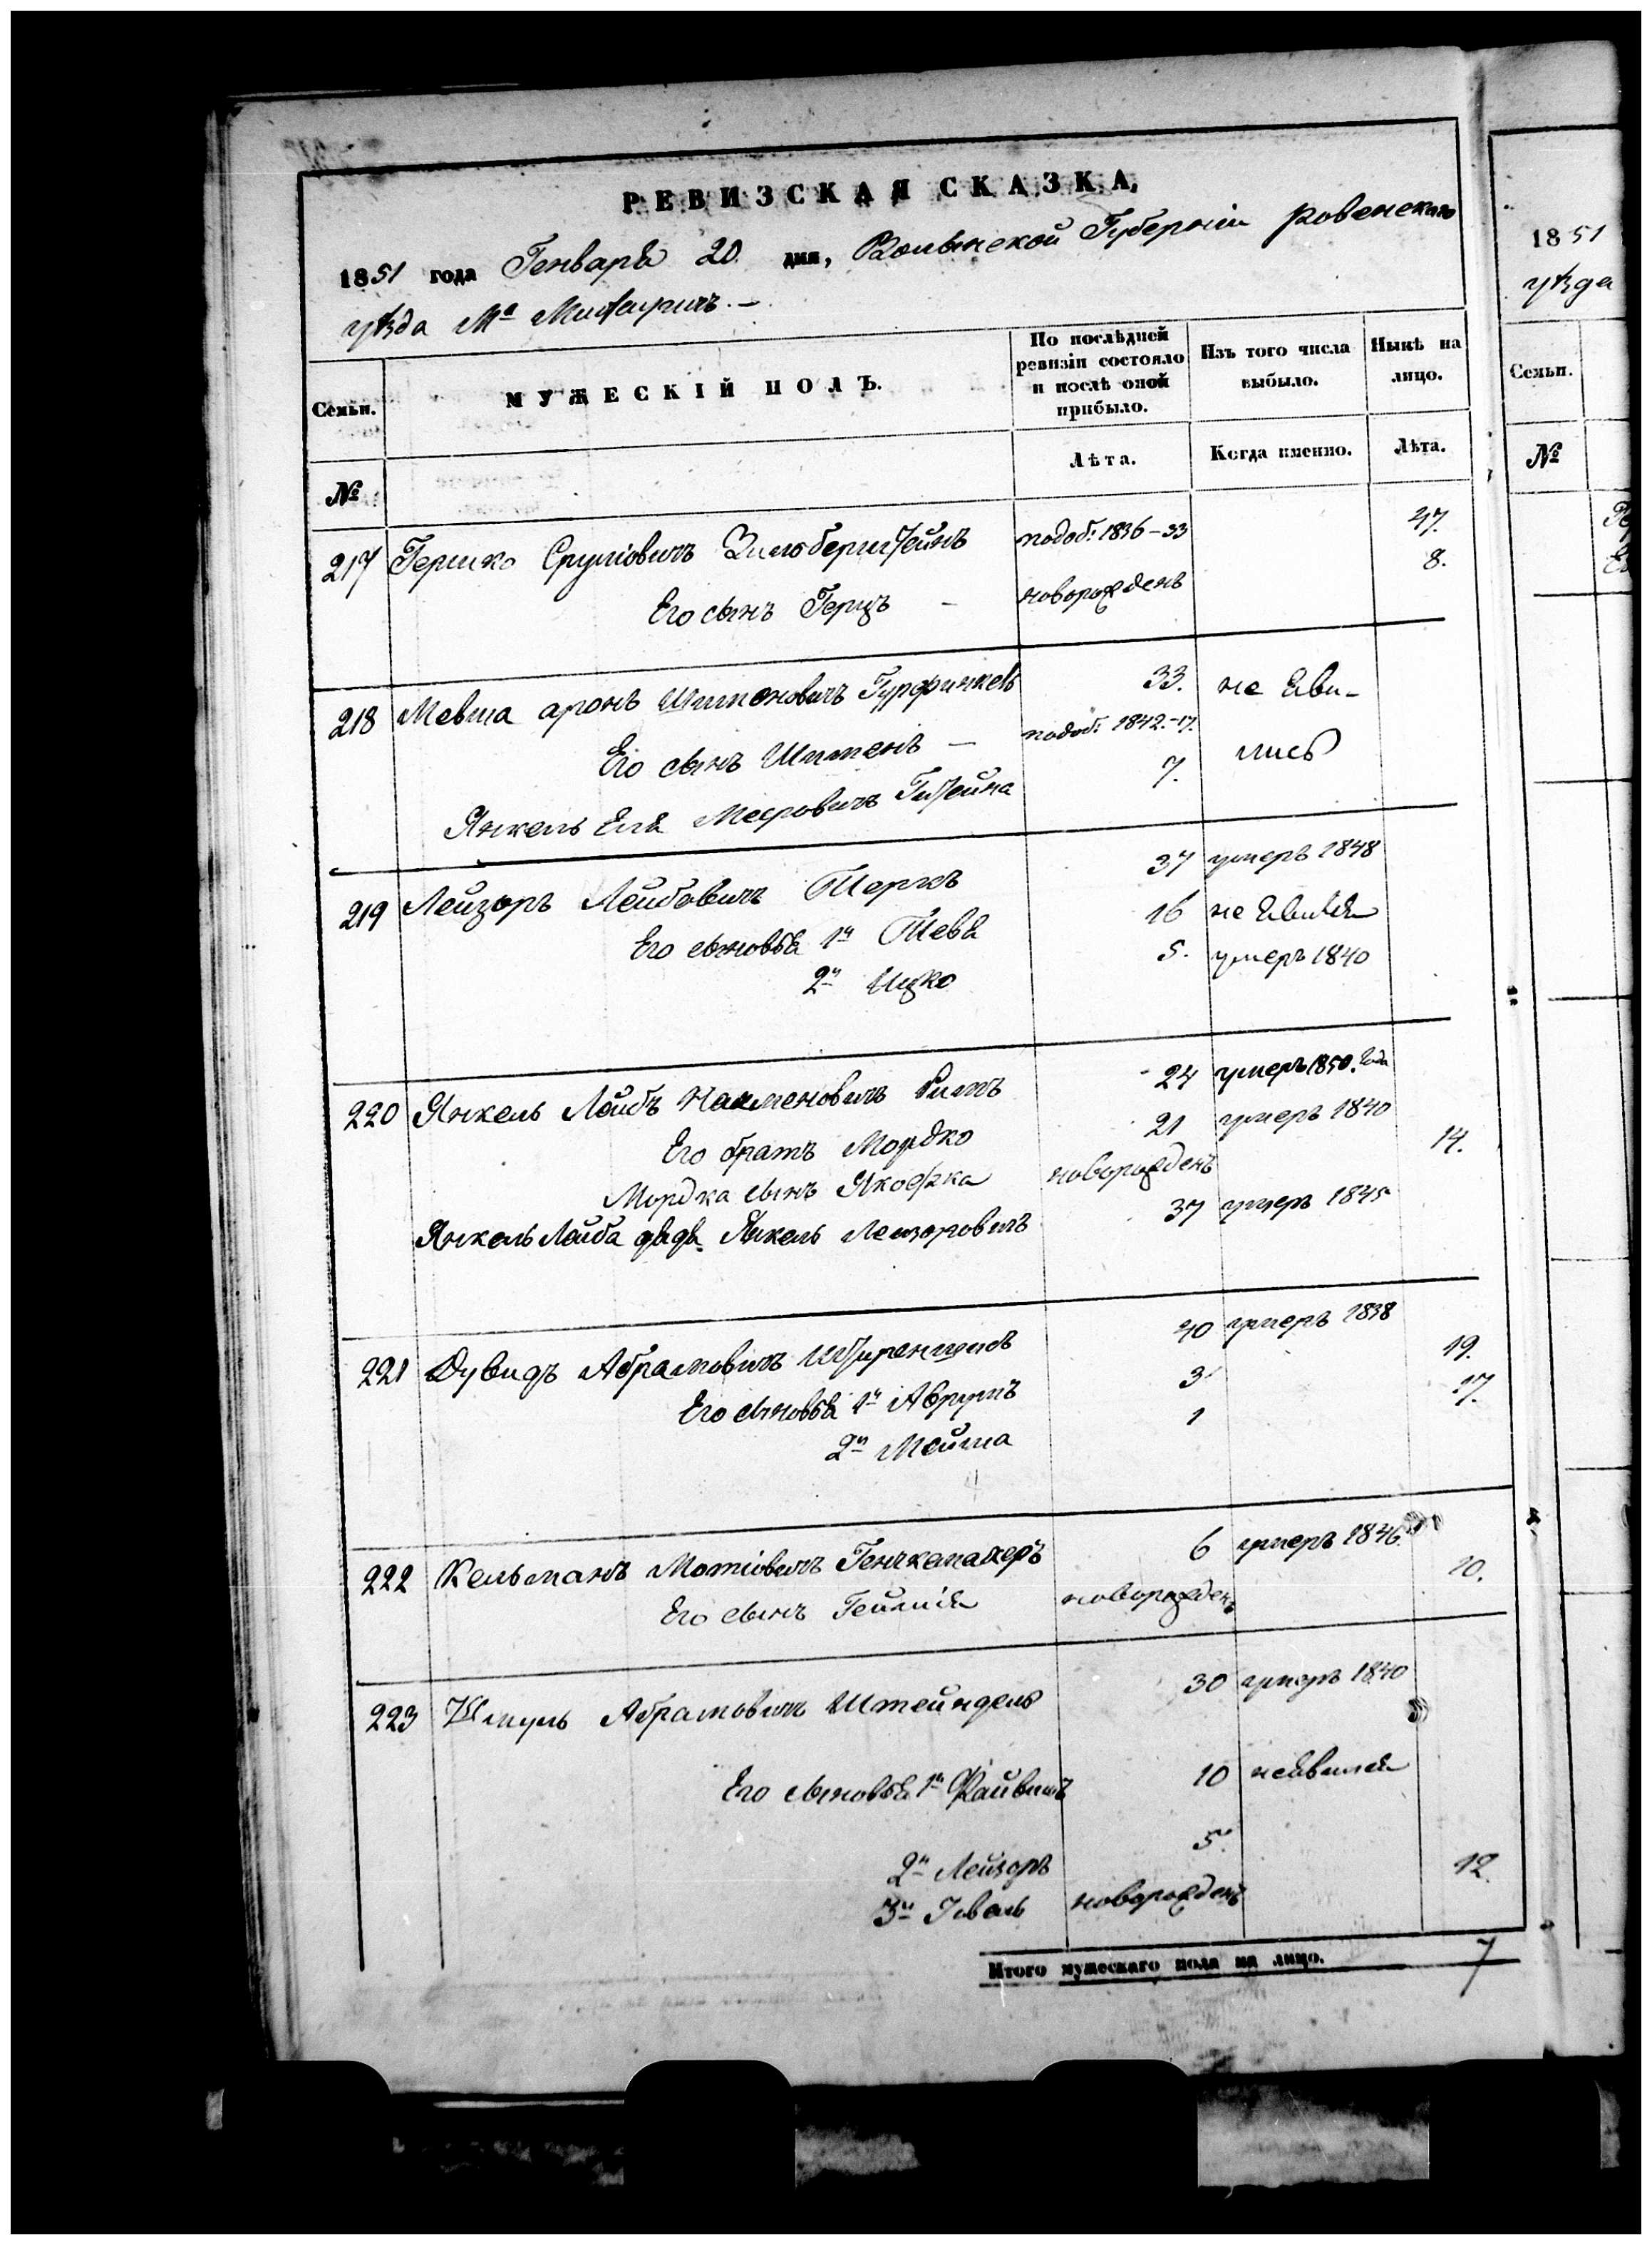 РЕВИЗСКАЯ СКАЗКА,
1851 года Генваря 20 дня, Волынской Губерніи Ровенскаго
уѣзда Мª Межиричъ. —
Семьи. МУЖЕСКІЙ ПОЛЪ. По послѣдней ревизіи состояло и послѣ оной прибыло. Изъ того числа выбыло. Нынѣ на лицо.
№ Лѣта. Когда именно. Лѣта.
217 Гершко Сруліовичъ Зильберштейнъ подоб: 1836–33 47.
Его сынъ Герцъ – новорожденъ 8.
218 Мевша аронъ Шименовичъ Гурфинкель 33. не Яви-
Его сынъ Шименъ – подоб: 1842.–17. лись
Янкель Еля Мееровичъ 7.
219 Лейзоръ Лейбовичъ 37 умеръ 1848
Его сыновья 1й 16 не Явился
2й Ицко 5. умеръ 1840
220 Янкель Лейбъ Нахменовичъ 24 умеръ 1850. года
Его братъ Мордко 21 умеръ 1840
Мордка сынъ новорожденъ 14.
Янкель Лейба дядя Янкель Лейзоровичъ 37 умеръ 1845
221 Дувидъ Абрамовичъ 40 умеръ 1838
Его сыновья 1й Аврумъ 3 19.
2й Мейша 1 17.
222 Кельманъ Мотіовичъ 6 умеръ 1846
Его сынъ новорожденъ 10.
223 Шмуль Абрамовичъ Штейндель 30 умеръ 1840
Его сыновья 1й Файвишъ 10 неявился
2й Лейзоръ 5
3й новорожденъ 12.
Итого мужескаго пола на лицо. 7
1851
уѣзда
Семьи.
№